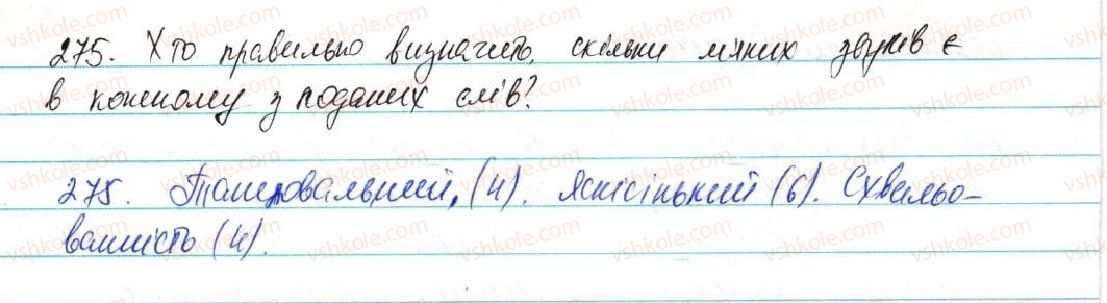 275. Хто правильно визначить, скільки м'яких звуків є
в кожному з поданих слів?
275. Танцювальний, (4). Яснісінький (6). Схвильо-
ваність (4).